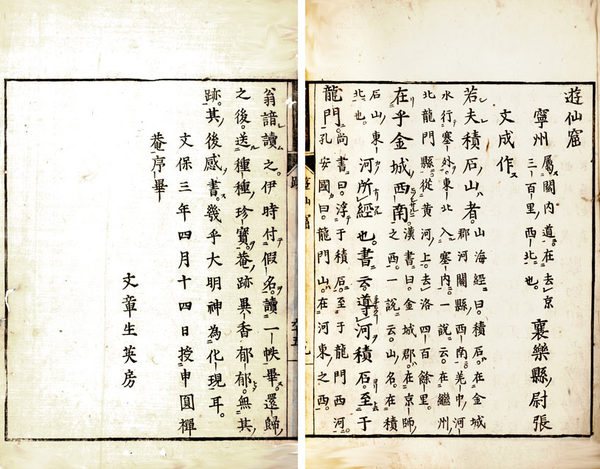 遊仙窟
寧州屬關内道在去京三百里西北也襄樂縣尉張
文成作
若夫積石山者山海經曰積石在金城郡河關縣西南羌中河
水行塞外東北入塞内一説云在繼州
北龍門縣從黄河上去洛四百餘里
在乎金城西南漢書曰金城郡在京師之西一説云山名在積
石山東北也河所經也書云導河積石至于
龍門尚書曰浮于積石至于龍門西河孔安國曰龍門山在河東之西
翁諳讀之伊時付假名讀一帙畢還歸
之後送種種珍寳菴跡異香郁郁無其
跡其後感書幾乎大明神為化現耳
文保三年四月十四日授申圓禪
菴序畢
文章生英房